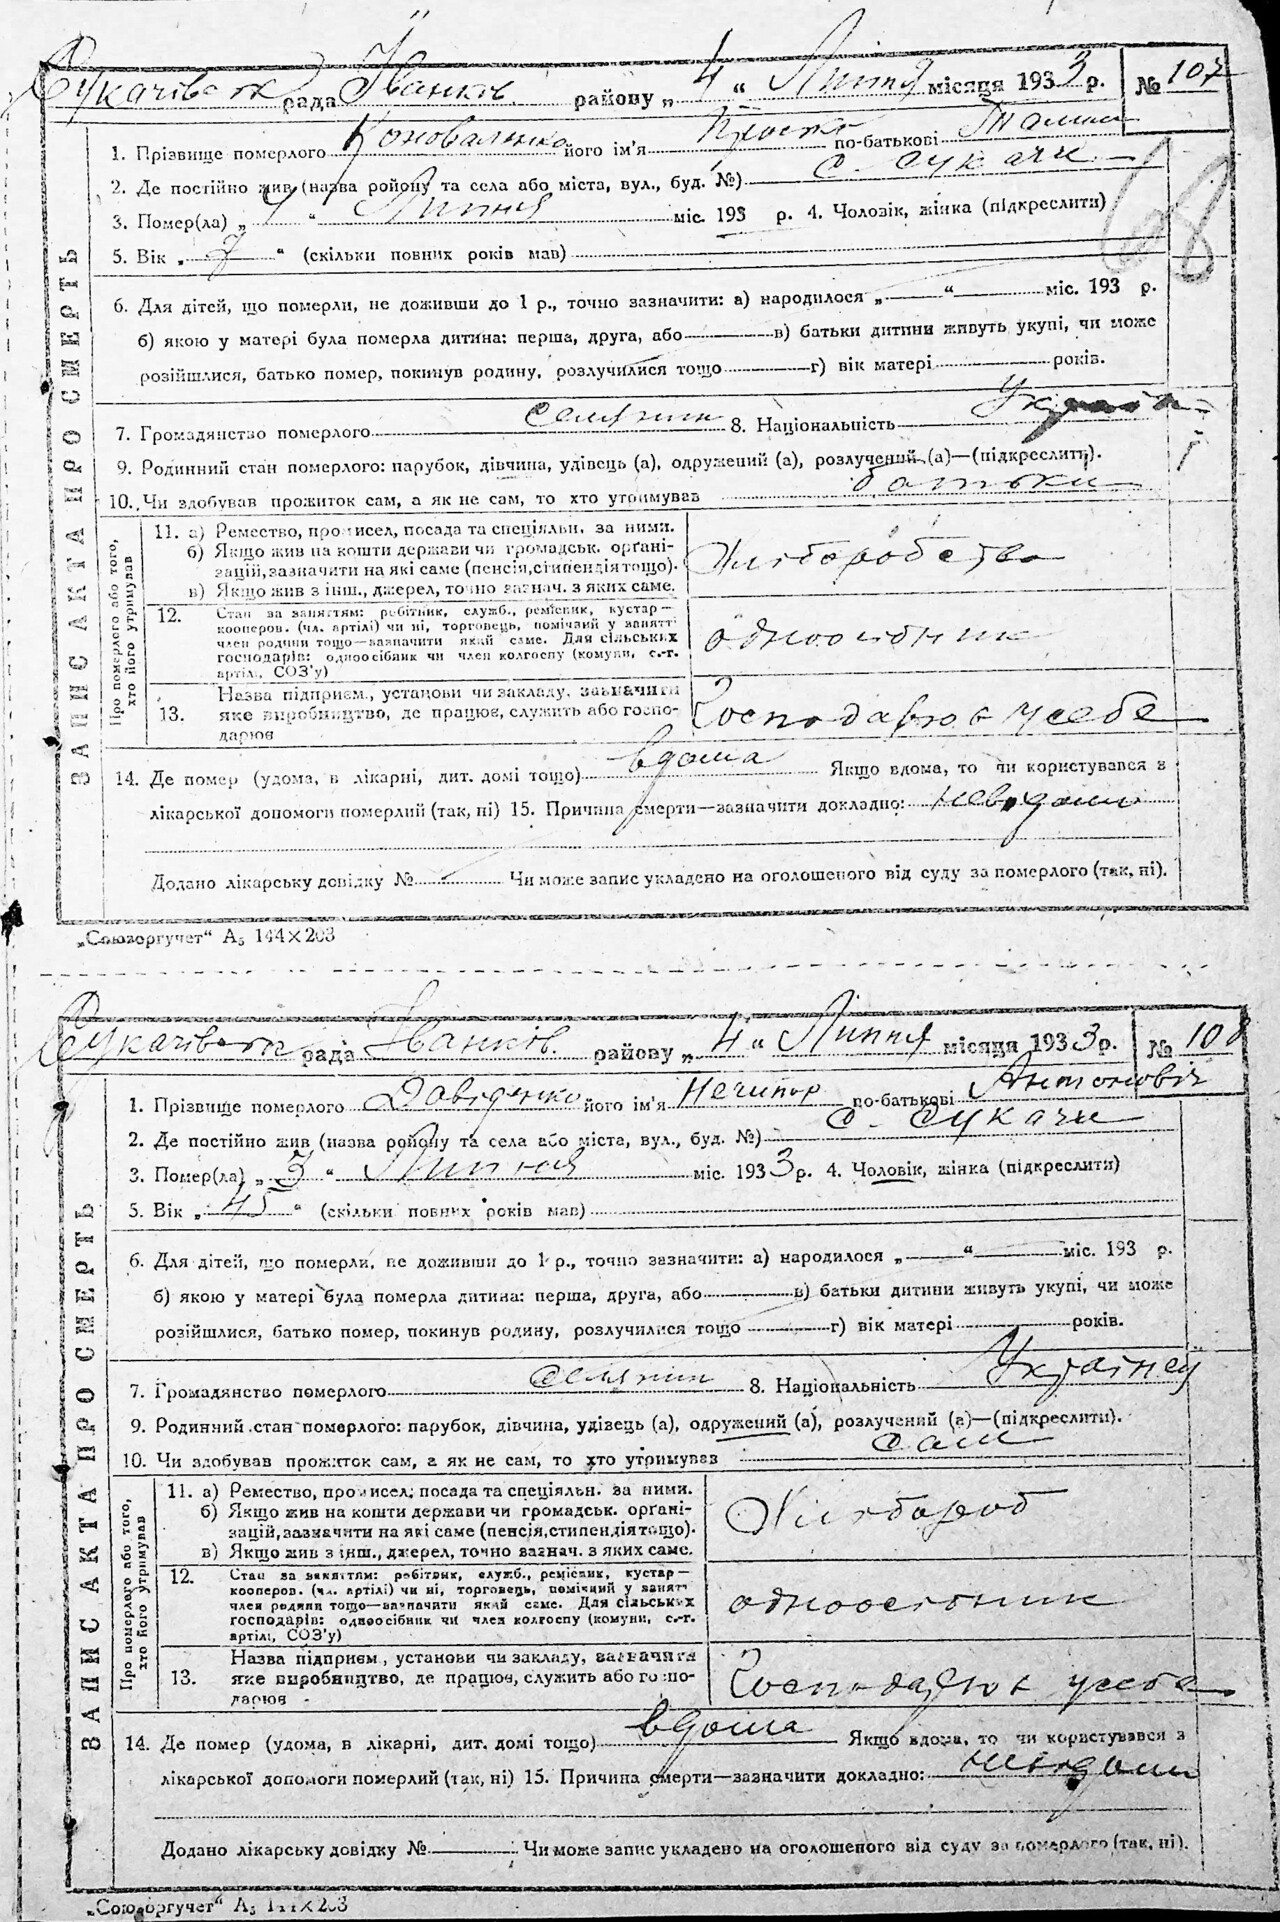 Сукачівська рада Іванків. району „ 4 “ Липня місяця 1933 р. № 107
1. Прізвище померлого Коноваленко його ім'я по-батькові
2. Де постійно жив (назва району та села або міста, вул., буд. №) с. Сукачи
3. Помер(ла) „ 4 “ Липня міс. 193 р. 4. Чоловік, жінка (підкреслити)
5. Вік „ 7 “ (скільки повних років мав)
68
6. Для дітей, що померли, не доживши до 1 р., точно зазначити: а) народилося „ — “ — міс. 193 р.
б) якою у матері була померла дитина: перша, друга, або — в) батьки дитини живуть укупі, чи може
розійшлися, батько помер, покинув родину, розлучилися тощо — г) вік матері — років.
7. Громадянство померлого селянин 8. Національність
9. Родинний стан померлого: парубок, дівчина, удівець (а), одружений (а), розлучений (а)—(підкреслити).
10. Чи здобував прожиток сам, а як не сам, то хто утримував батьки
ЗАПИС АКТА ПРО СМЕРТЬ
Про померлого або того, хто його утримував
11. а) Ремество, промисел, посада та спеціяльн. за ними.
б) Якщо жив на кошти держави чи громадськ. орґані-
зацій, зазначити на які саме (пенсія, стипендія тощо).
в) Якщо жив з інш., джерел, точно зазнач. з яких саме.
Хліборобство
12. Стан за заняттям: робітник, служб., ремісник, кустар—
кооперов. (чл. артілі) чи ні, торговець, помічний у занятті
член родини тощо—зазначити який саме. Для сільських
господарів: одноосібник чи член колгоспу (комуни, с.-г.
артілі, СОЗ'у)
одноосібник
13. Назва підприєм., установи чи закладу, зазначити
яке виробництво, де працює, служить або госпо-
дарює
Господарює у себе
14. Де помер (удома, в лікарні, дит. домі тощо) вдома Якщо вдома, то чи користувався з
лікарської допомоги померлий (так, ні) 15. Причина смерти—зазначити докладно: невідомо
Додано лікарську довідку № Чи може запис укладено на оголошеного від суду за померлого (так, ні).
„Союзоргучет“ А₅ 144×203
Сукачівська рада Іванків. району „ 4 “ Липня місяця 1933 р. № 108
1. Прізвище померлого Давіденко його ім'я Нечипор по-батькові Антонович
2. Де постійно жив (назва району та села або міста, вул., буд. №) с. Сукачи
3. Помер(ла) „ 3 “ Липня міс. 1933 р. 4. Чоловік, жінка (підкреслити)
5. Вік „ 45 “ (скільки повних років мав)
6. Для дітей, що померли, не доживши до 1 р., точно зазначити: а) народилося „ — “ — міс. 193 р.
б) якою у матері була померла дитина: перша, друга, або — в) батьки дитини живуть укупі, чи може
розійшлися, батько помер, покинув родину, розлучилися тощо — г) вік матері — років.
7. Громадянство померлого селянин 8. Національність Українец
9. Родинний стан померлого: парубок, дівчина, удівець (а), одружений (а), розлучений (а)—(підкреслити).
10. Чи здобував прожиток сам, а як не сам, то хто утримував сам
ЗАПИС АКТА ПРО СМЕРТЬ
Про померлого або того, хто його утримував
11. а) Ремество, промисел, посада та спеціяльн. за ними.
б) Якщо жив на кошти держави чи громадськ. орґані-
зацій, зазначити на які саме (пенсія, стипендія тощо).
в) Якщо жив з інш., джерел, точно зазнач. з яких саме.
Хлібороб
12. Стан за заняттям: робітник, служб., ремісник, кустар—
кооперов. (чл. артілі) чи ні, торговець, помічний у занятті
член родини тощо—зазначити який саме. Для сільських
господарів: одноосібник чи член колгоспу (комуни, с.-г.
артілі, СОЗ'у)
одноосібник
13. Назва підприєм., установи чи закладу, зазначити
яке виробництво, де працює, служить або госпо-
дарює
Господарює у себе
14. Де помер (удома, в лікарні, дит. домі тощо) вдома Якщо вдома, то чи користувався з
лікарської допомоги померлий (так, ні) 15. Причина смерти—зазначити докладно: невідомо
Додано лікарську довідку № Чи може запис укладено на оголошеного від суду за померлого (так, ні).
„Союзоргучет“ А₅ 144×203